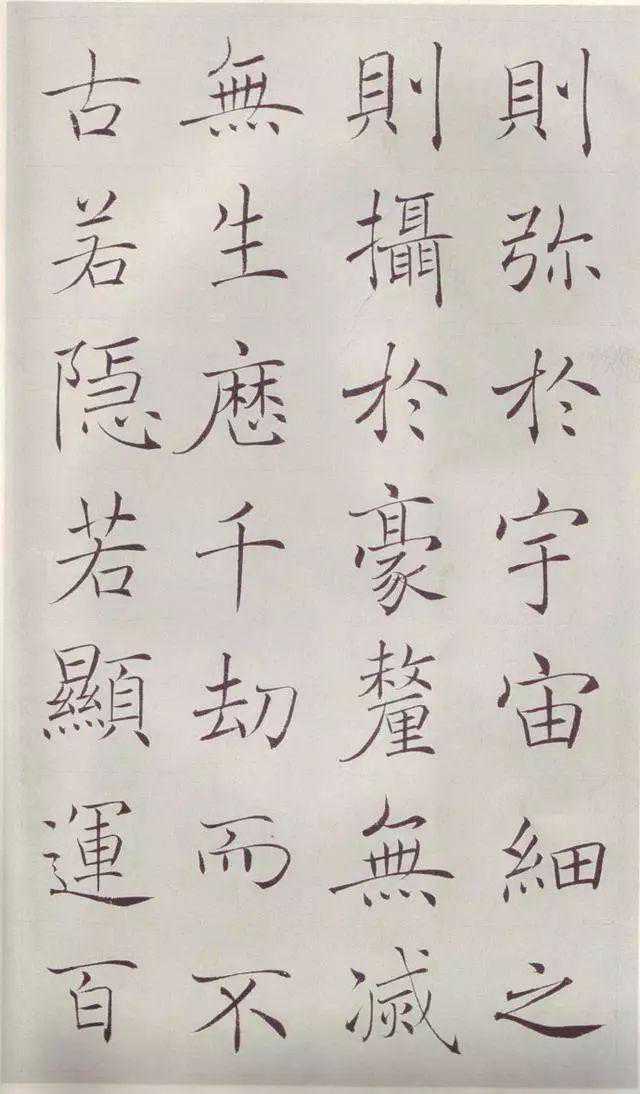 則弥於宇宙細之
則攝於豪氂無滅
無生歷千劫而不
古若隱若顯運百